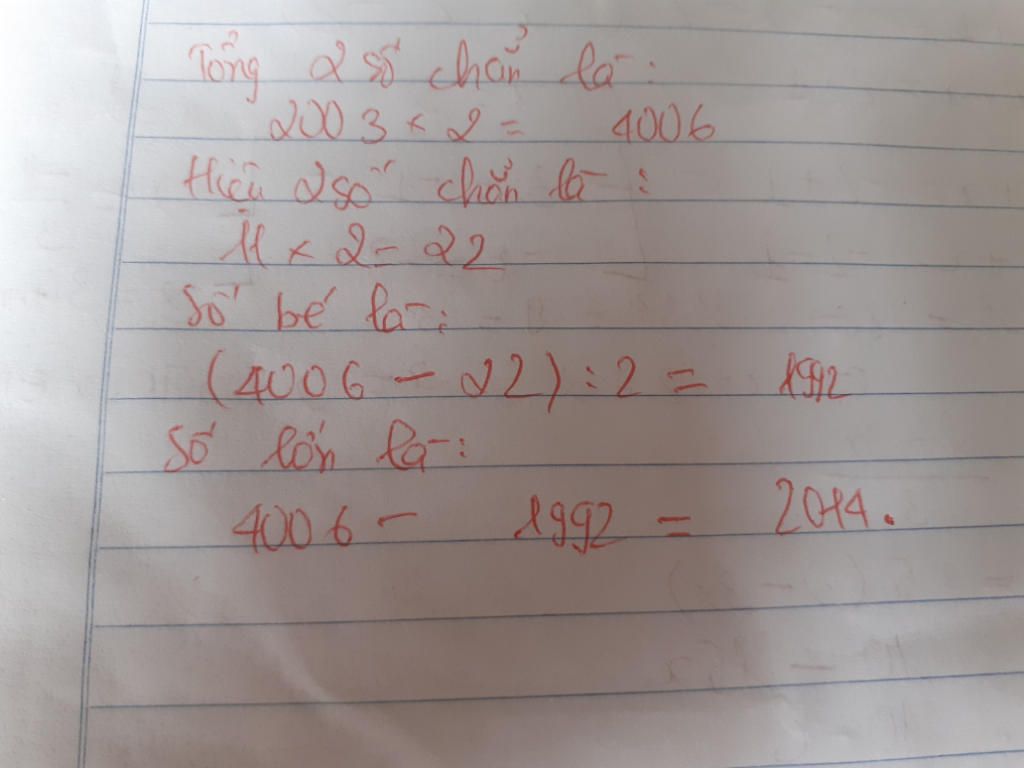 Tổng 2 số chẵn là:
2003 × 2 = 4006
Hiệu 2 số chẵn là:
11 × 2 = 22
Số bé là:
(4006 - 22) : 2 = 1992
Số lớn là:
4006 - 1992 = 2014.